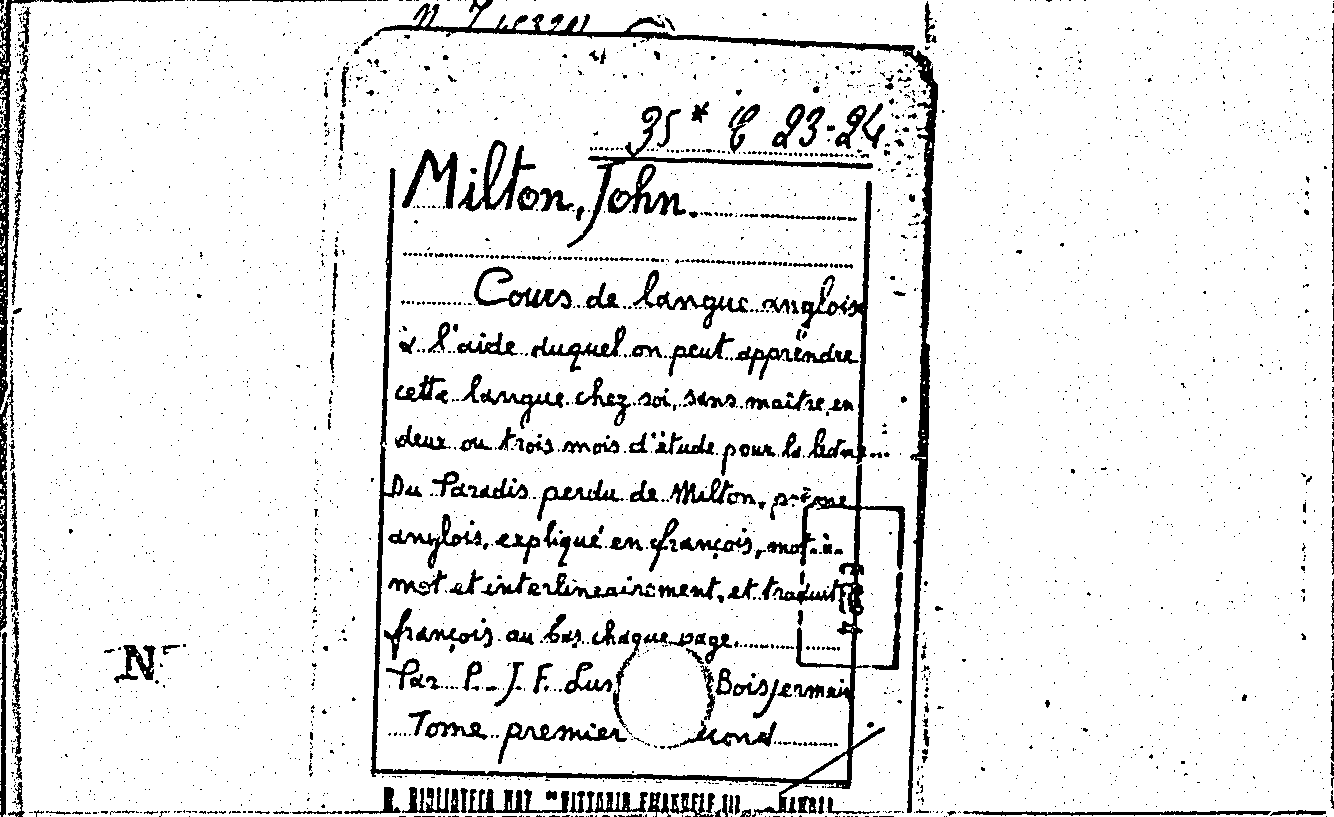 35* C 23-24
Milton, John.
Cours de langue anglois
à l'aide duquel on peut apprendre
cette langue chez soi, sans maître, en
deux ou trois mois d'étude pour la
Du Paradis perdu de Milton, poëme
anglois, expliqué en françois, mot-à-
mot et interlineairement, et traduit
françois au bas chaque page.
Par P. J. F. Lus Boisjermain
Tome premier econd
R. BIBLIOTECA NAZ. "VITTORIO EMANUELE III" - NAPOLI
N